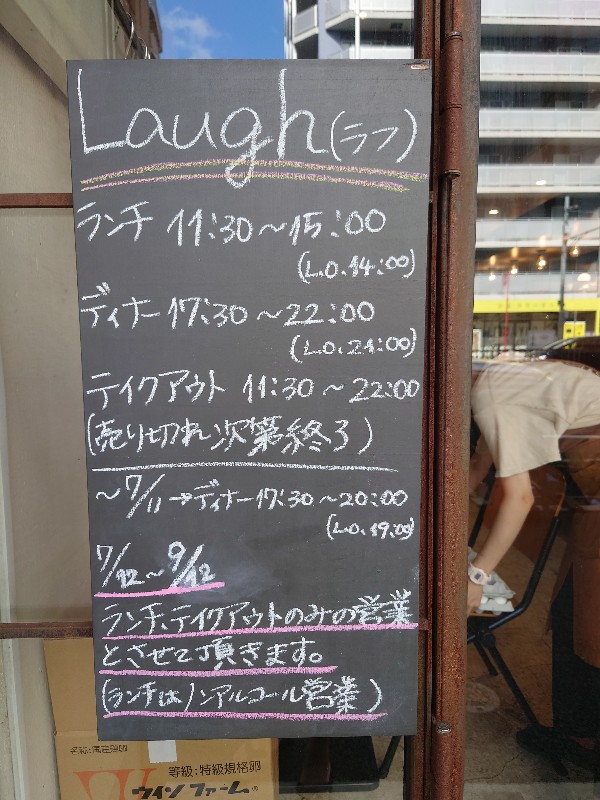 Laugh(ラフ)
ランチ 11:30～15:00
(L.O.14:00)
ディナー 17:30～22:00
(L.O.21:00)
テイクアウト 11:30～22:00
(売り切れ次第終了)
～7/11→ディナー17:30～20:00
(L.O.19:00)
7/12～9/12
ランチ、テイクアウトのみの営業
とさせて頂きます。
(ランチはノンアルコール営業)
名称:国産鶏卵
等級:特級規格卵
ウインファーム®